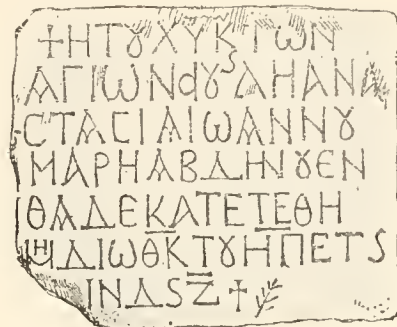 +ΗΤȣΧΥΚϚΤѠΝ
ΑΓΙѠΝΔȣΛΗΑΝΑ
CΤΑCΙΑΙѠΑΝΝȣ
ΜΑΡΗΑΒΔΗΝȣΕΝ
ΘΑΔΕΚΑΤΕΤΕΘΗ
ΔΙѠΘΚΤȣΗΠΕΤϚ
ΙΝΔϚΖ+